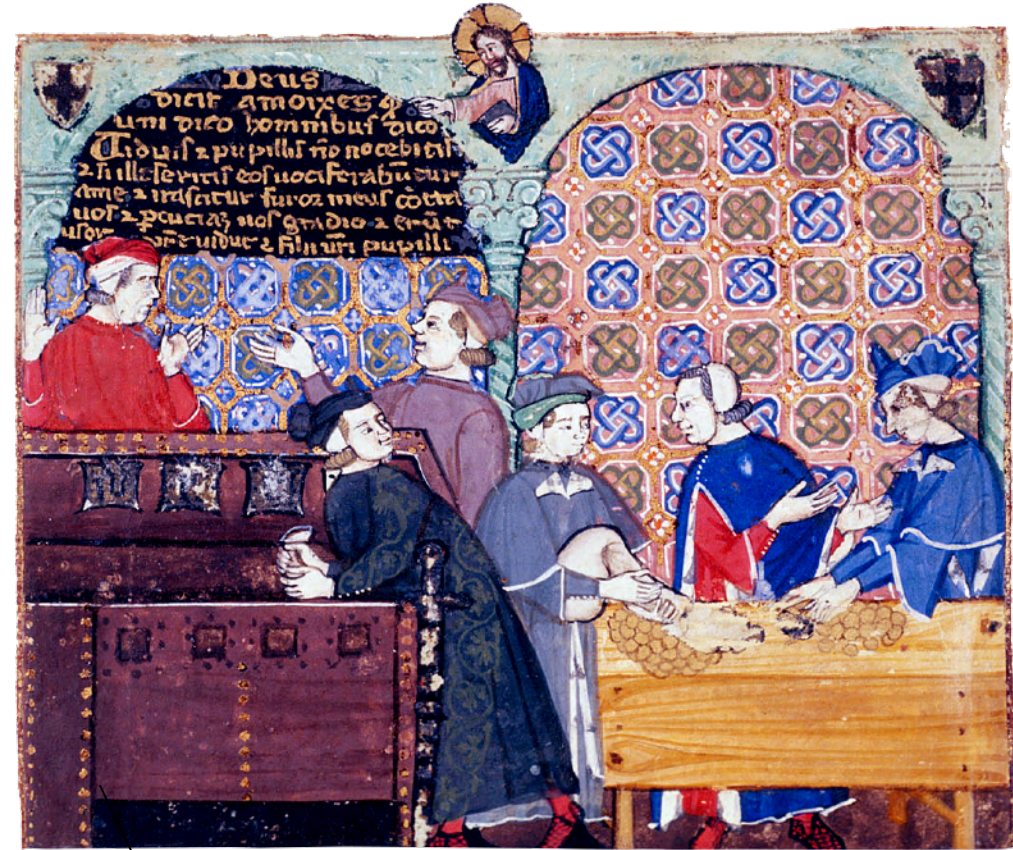 Deus
dicit amoixes q̄
uni dico hominibus dico
Viduis ⁊ pupillis nō nocebitis
⁊ si illeseritis eos vociferabūt
me ⁊ irascitur furor meus cōtra
vos ⁊ ꝑcuciaꝫ vos gladio ⁊ erūt
vidue ⁊ filii vr̄i pupilli